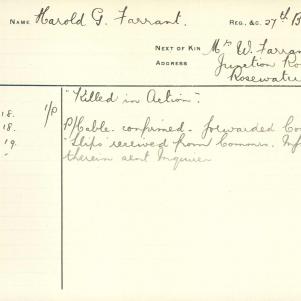 NAME Harold G. Farrant. REG. &C. 27th B
NEXT OF KIN Mrs W. Farran
ADDRESS Junction Ro
Rosewate
18. 1/P "Killed in Action".
18. P/Cable. confirmed - forwarded Co
19. "Slips" received from Commn. Inf
" therein sent Inquirer